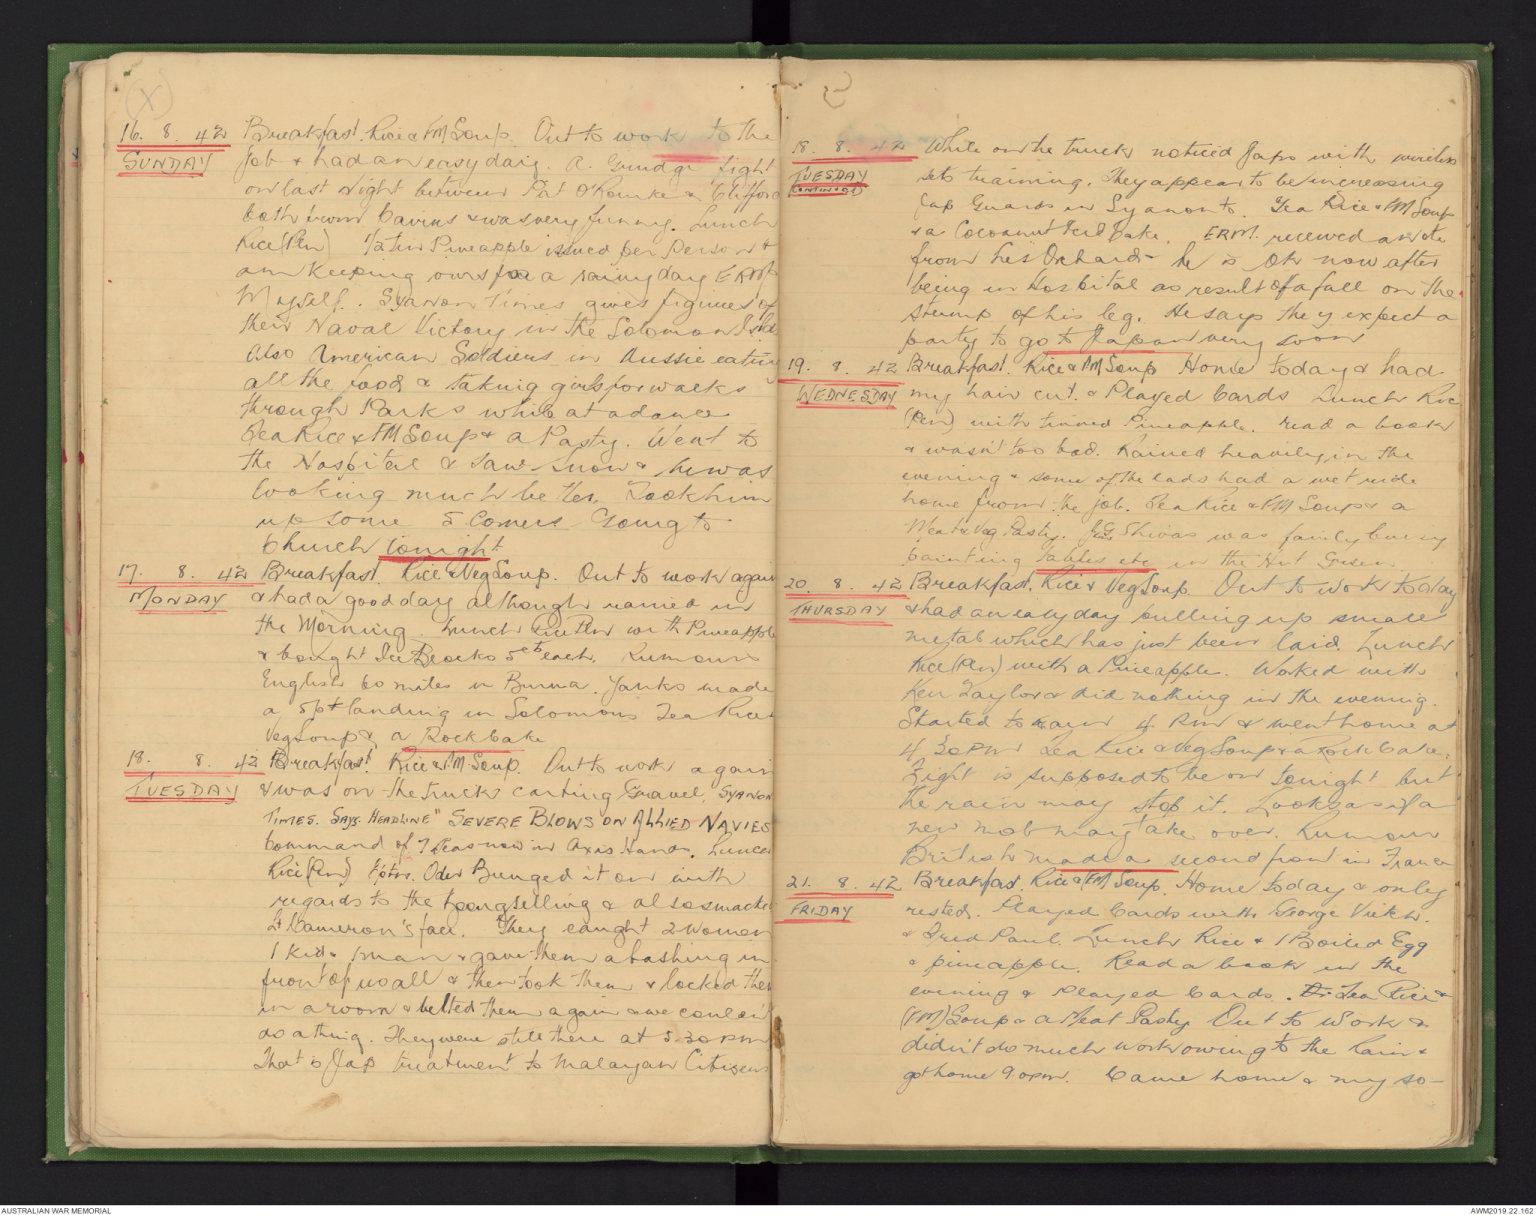 (X)
16. 8. 42 Breakfast. Rice & FM Soup. Out to work to the
SUNDAY job & had an easy day. A. Grudge fight
on last night between Pat O'Rourke & Clifford
both from Cairns & was very funny. Lunch
Rice (Pln) 1/2 tin Pineapple issued per person &
am keeping ours for a rainy day ERM &
Myself. Syanon Times gives figures of
their Naval Victory in the Solomon Islds
Also American Soldiers in Aussie eating
all the food & taking girls for walks
through Parks while at a dance
Tea Rice & FM Soup & a Pasty. Went to
the Hospital & saw Snow & he was
looking much better. Took him
up some 5 Corners Going to
Church tonight
17. 8. 42 Breakfast. Rice & Veg Soup. Out to work again
MONDAY & had a good day although rained in
the Morning. Lunch Rice Pln with Pineapple
& bought Ice Blocks 5cts each. Rumours
English 60 miles in Burma. Yanks made
a 5pt landing in Solomons Tea Rice &
Veg Soup & a Rock Cake
18. 8. 42 Breakfast. Rice & FM Soup. Out to work again
TUESDAY & was on the trucks carting Gravel, SYANON
TIMES. SAYS. HEADLINE "SEVERE BLOWS ON ALLIED NAVIES
Command of 7 Seas now in Axis Hands. Lunch
Rice (Pln) Bunged it on with
regards to the tong selling & also smacked
Lt Cameron's face. They caught 2 women
1 kid & 1 man & gave them a bashing in
front of us all & then took them & locked them
in a room & belted them again & we couldn't
do a thing. They were still there at 5.30 PM
That is Jap treatment to Malayan Citizens
18. 8. 42 While on the truck noticed Japs with wireless
TUESDAY sets training. They appear to be increasing
CONTINUED Jap Guards in Syanon to. Tea Rice & FM Soup
& a Cocoanut Cake. ERM. received a note
from Les Orchard - he is OK now after
being in Hospital as result of a fall on the
stump of his leg. He says they expect a
party to go to Japan very soon
19. 8. 42 Breakfast. Rice & FM Soup Home today & had
WEDNESDAY my hair cut. & Played Cards Lunch Rice
(Pln) with tinned Pineapple. read a book
& wasn't too bad. Rained heavily in the
evening & some of the lads had a wet ride
home from the job. Tea Rice & FM Soup & a
Meat & Veg Pasty. Shivas was fairly busy
painting tables etc in the Hut Green
20. 8. 42 Breakfast. Rice & Veg Soup. Out to work today
THURSDAY & had an easy day pulling up small
metal which has just been laid. Lunch
Rice (Pln) with a Pineapple. Worked with
Ken Taylor & did nothing in the evening.
Started to rain 4 PM & went home at
4.30 PM Tea Rice & Veg Soup & a Rock Cake.
Fight is supposed to be on tonight but
the rain may stop it. Looks as if a
new mob may take over. Rumour
British made a second front in France
21. 8. 42 Breakfast. Rice & (FM) Soup. Home today & only
FRIDAY rested. Played Cards with George Vitch.
& Fred Paul. Lunch Rice & 1 Boiled Egg
& pineapple. Read a book in the
evening & Played Cards. Tea Rice &
(FM) Soup & a Meat Pasty Out to Work &
didn't do much work owing to the Rain &
got home 9 opm. Came home & my so-
AUSTRALIAN WAR MEMORIAL
AWM2019.22.162